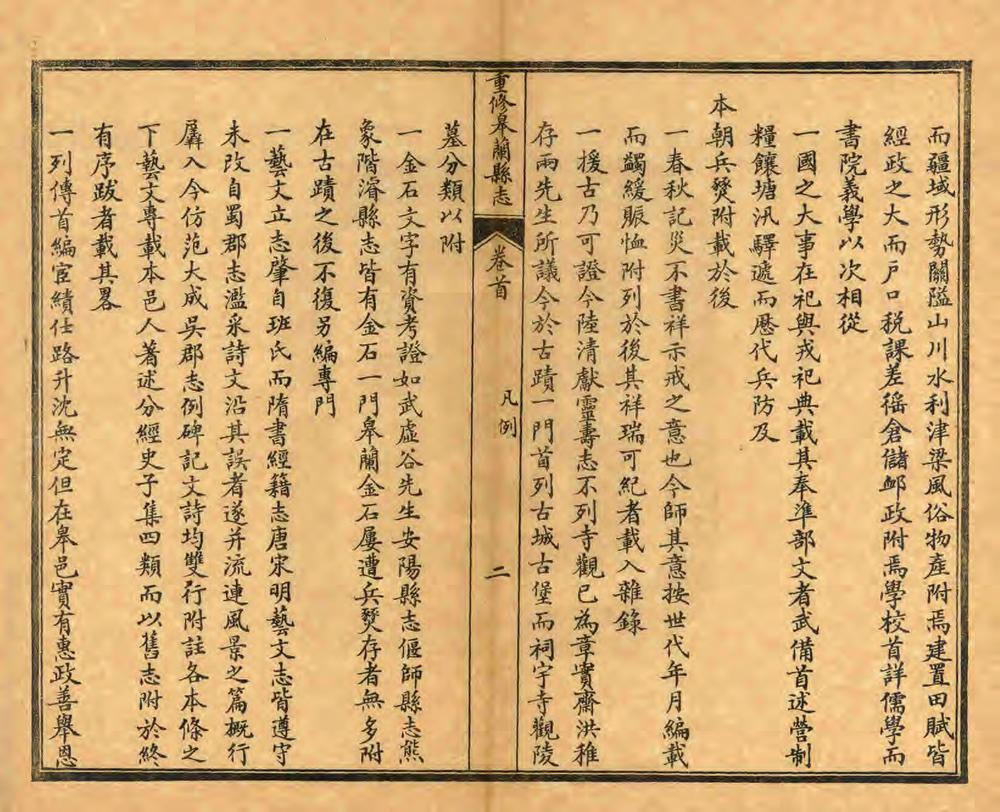 而疆域形勢關隘山川水利津梁風俗物產附焉建置田賦皆
經政之大而戶口稅課差徭倉儲郵政附焉學校首詳儒學而
書院義學以次相從
一國之大事在祀與戎祀典載其奉準部文者武備首述營制
糧饟塘汛驛遞而歷代兵防及
本朝兵燹附載於後
一春秋記災不書祥示戒之意也今師其意按世代年月編載
而蠲緩賑恤附列於後其祥瑞可紀者載入雜錄
一援古乃可證今陸清獻靈壽志不列寺觀已為章實齋洪稚
存兩先生所議今於古蹟一門首列古城古堡而祠宇寺觀陵
重修皋蘭縣志
卷首
凡例
二
墓分類以附
一金石文字有資考證如武虛谷先生安陽縣志偃師縣志熊
象階濬縣志皆有金石一門皋蘭金石屢遭兵燹存者無多附
在古蹟之後不復另編專門
一藝文立志肇自班氏而隋書經籍志唐宋明藝文志皆遵守
未改自蜀郡志濫采詩文沿其誤者遂并流連風景之篇概行
羼入今仿范大成吳郡志例碑記文詩均雙行附註各本條之
下藝文專載本邑人著述分經史子集四類而以舊志附於終
有序跋者載其畧
一列傳首編宦績仕路升沈無定但在皋邑實有惠政善舉恩